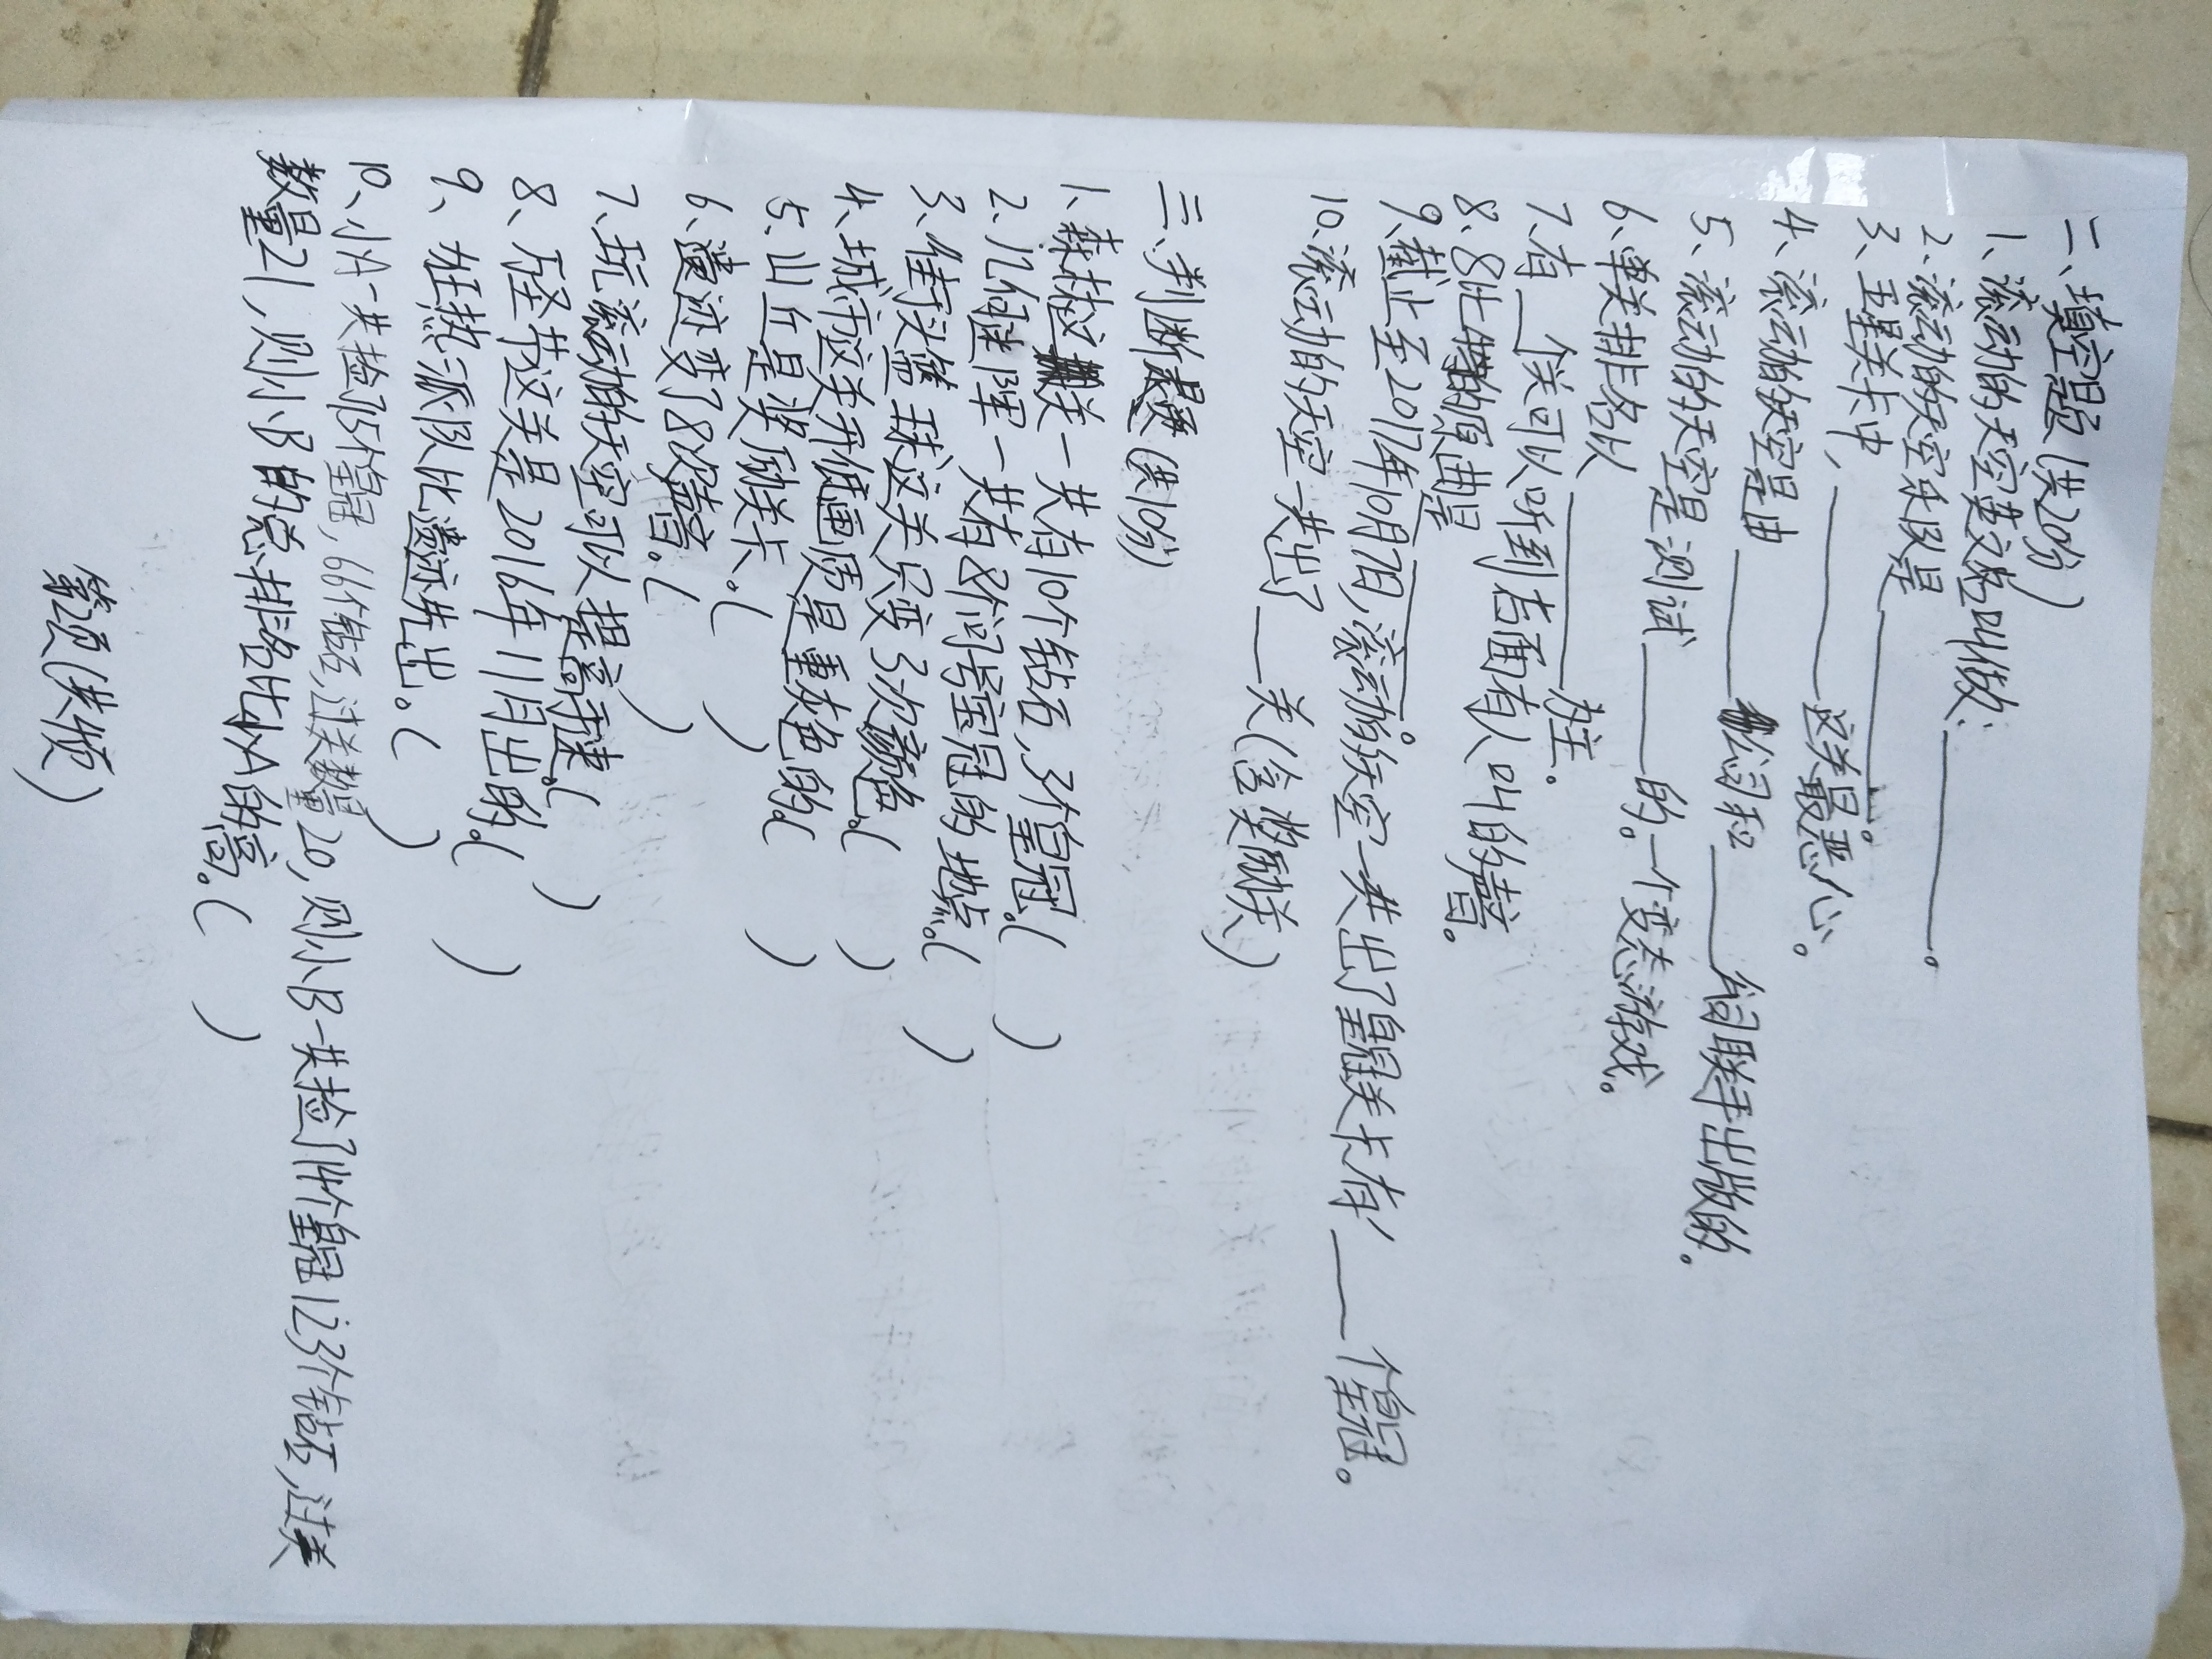 二、填空题(共20分)
1、滚动的天空英文名叫做:______。
2、滚动的天空乐队是______。
3、五星关卡中,______这关是最恶心。
4、滚动的天空是由____公司和____公司联手出版的。
5、滚动的天空是测试____的。一个变态游戏。
6、单关排名以______为主。
7、有__个关可以听到后面有人叫的声音。
8、8比特的原曲是______。
9、截止至2017年10月7日,滚动的天空一共出了皇冠关卡有____个皇冠。
10、滚动的天空一共出了__关(含奖励关)
三、判断题(共10分)
1、森林这关一共有10个钻石,3个皇冠。( )
2、几何迷阵一共有8个问号皇冠的地点。( )
3、维可头盔 球这关只变3次颜色。( )
4、城市这关升低画质是重灰色的。( )
5、山丘是奖励关卡。( )
6、遗迹变了8次声音。( )
7、玩滚动的天空可以提高手速。( )
8、万圣节这关是2016年11月出的。( )
9、狂热派队比遗迹先出。( )
10、小A一共捡了6个皇冠,66个钻石,过关数量20,则小B一共捡了14个皇冠123个钻石,过关
数量21,则小B的总排名比小A的高。( )
第2页(共4页)